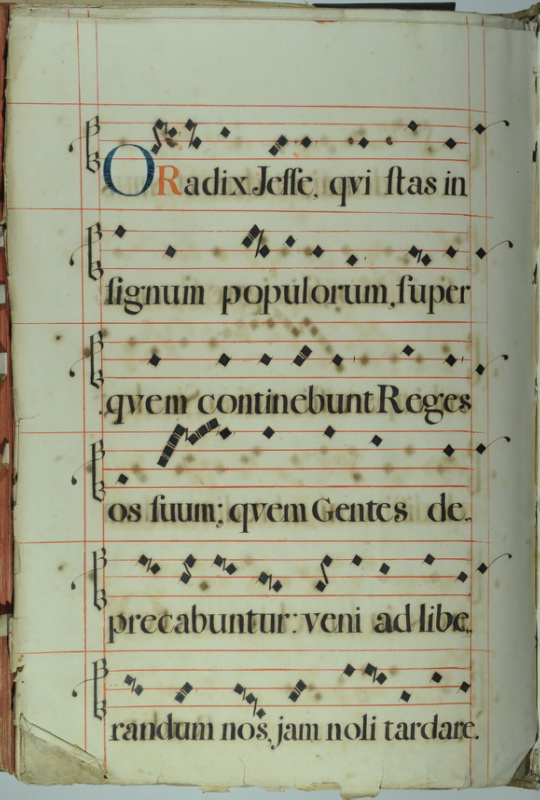 O Radix Jeſſe, qvi ſtas in
ſignum populorum, ſuper
qvem continebunt Reges
os ſuum; qvem Gentes de-
precabuntur: veni ad libe-
randum nos, jam noli tardare.